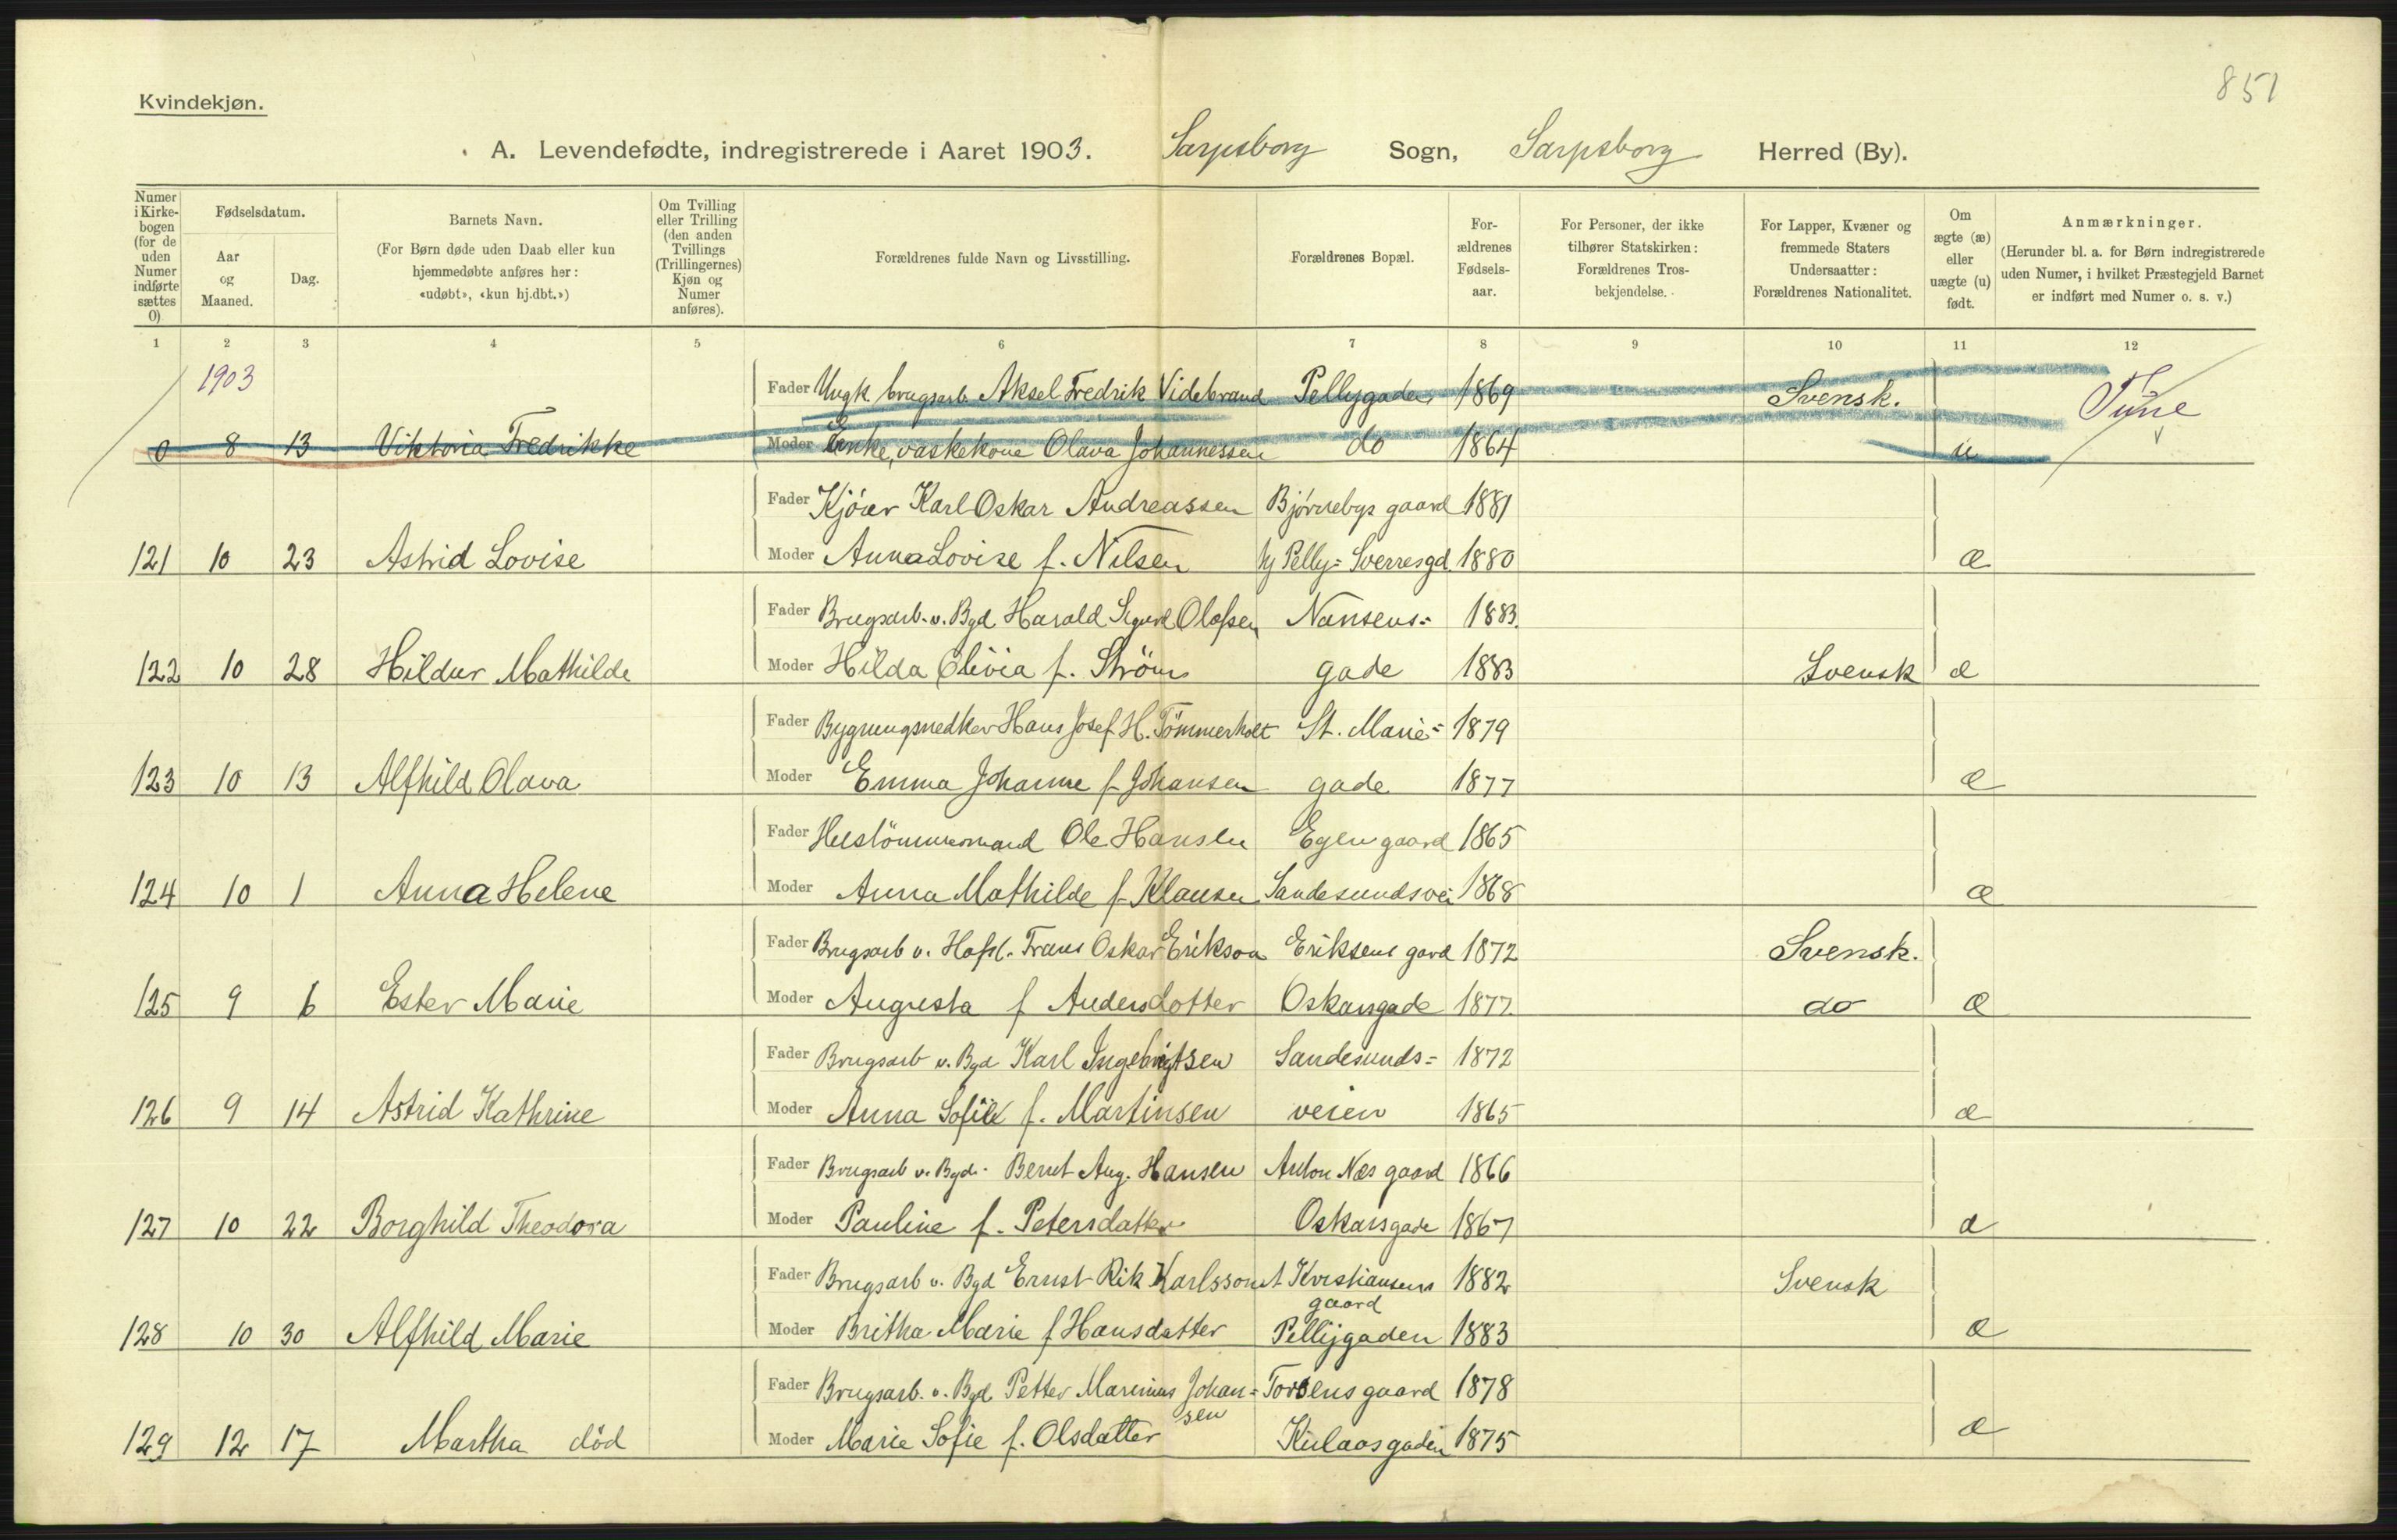 851
Kvindekjøn.
A. Levendefødte, indregistrerede i Aaret 1903. Sarpsborg Sogn, Sarpsborg Herred (By).
Numer i Kirke-bogen (for de uden Numer indførte sættes 0)
Fødselsdatum.
Aar og Maaned.
Dag.
Barnets Navn.
(For Børn døde uden Daab eller kun hjemmedøbte anføres her: «udøbt», «kun hj.dbt.»)
Om Tvilling eller Trilling (den anden Tvillings (Trillingernes) Kjøn og Numer anføres).
Forældrenes fulde Navn og Livsstilling.
Forældrenes Bopæl.
For-ældrenes Fødsels-aar.
For Personer, der ikke tilhører Statskirken: Forældrenes Tros-bekjendelse.
For Lapper, Kvæner og fremmede Staters Undersaatter: Forældrenes Nationalitet.
Om ægte (æ) eller uægte (u) født.
Anmærkninger.
(Herunder bl. a. for Børn indregistrerede uden Numer, i hvilket Præstegjeld Barnet er indført med Numer o. s. v.)
1 2 3 4 5 6 7 8 9 10 11 12
1903 Fader Ungk. brugsarb. Aksel Fredrik Videbrand Pellygaden 1869 Svensk. Tune
0 8 13 Viktoria Fredrikke Moder Enke, vaskekone Olava Johannessen do 1864 u
Fader Kjører Karl Oskar Andreassen Bjørnebys gaard 1881
121 10 23 Astrid Lovise Moder Anna Lovise f. Nilsen Hj Pelly= Sverresgd. 1880 æ
Fader Brugsarb. v. Bgd Harald Sigurd Olofsen Nansens= 1883.
122 10 28 Hildur Mathilde Moder Hilda Olivia f. Strøm gade 1883 Svensk æ
Fader Bygningsnedker Hans Josef H. Tømmerholt St. Marie= 1879
123 10 13 Alfhild Olava Moder Emma Johanne f. Johansen gade 1877 æ
Fader Hustømmermand Ole Hansen Egen gaard 1865
124 10 1 Anna Helene Moder Anna Mathilde f. Klausen Sandesundsvei 1868 æ
Fader Brugsarb v. Hafsl. Frans Oskar Erikson Eriksens gard 1872 Svensk.
125 9 6 Ester Marie Moder Augusta f Andersdotter Oskarsgade 1877. do æ
Fader Brugsarb v. Bgd Karl Ingebrigtsen Sandesunds= 1872
126 9 14 Astrid Kathrine Moder Anna Sofie f. Martinsen veien 1865 æ
Fader Brugsarb v. Bgd. Bernt Aug. Hansen Anton Næs gaard 1866
127 10 22 Borghild Theodora Moder Pauline f. Petersdatter Oskarsgade 1867 æ
Fader Brugsarb v. Bgd Ernst Rik Karlsson Kristiansens 1882 Svensk
gaard
128 10 30 Alfhild Marie Moder Britha Marie f Hansdatter Pellygaden 1883 æ
Fader Brugsarb. v. Bgd. Petter Marinius Johan= Torsens gaard 1878
sen
129 12 17 Martha død Moder Marie Sofie f. Olsdatter Kulaasgaden 1875 æ